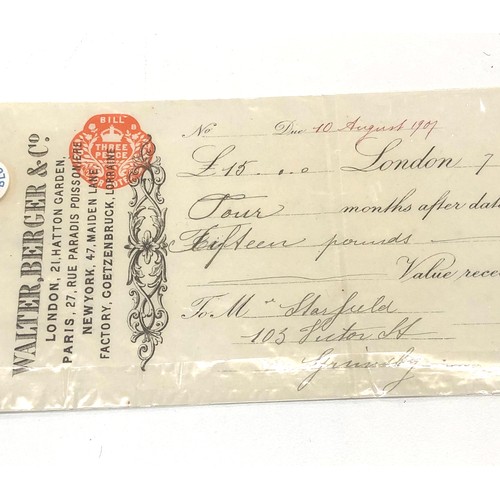 WALTER, BERGER & Co.
LONDON, 21, HATTON GARDEN,
PARIS, 27, RUE PARADIS POISSONIERE,
NEW YORK, 47, MAIDEN LANE
FACTORY, GOETZENBRUCK, LORRAINE
BILL
THREE
PENCE
No Due 10 August 1907
£15 . 0 . 0 London 7
Four months after dat
Fifteen pounds
Value rece
To Mr Starfield
103 Victor St
Grimsby